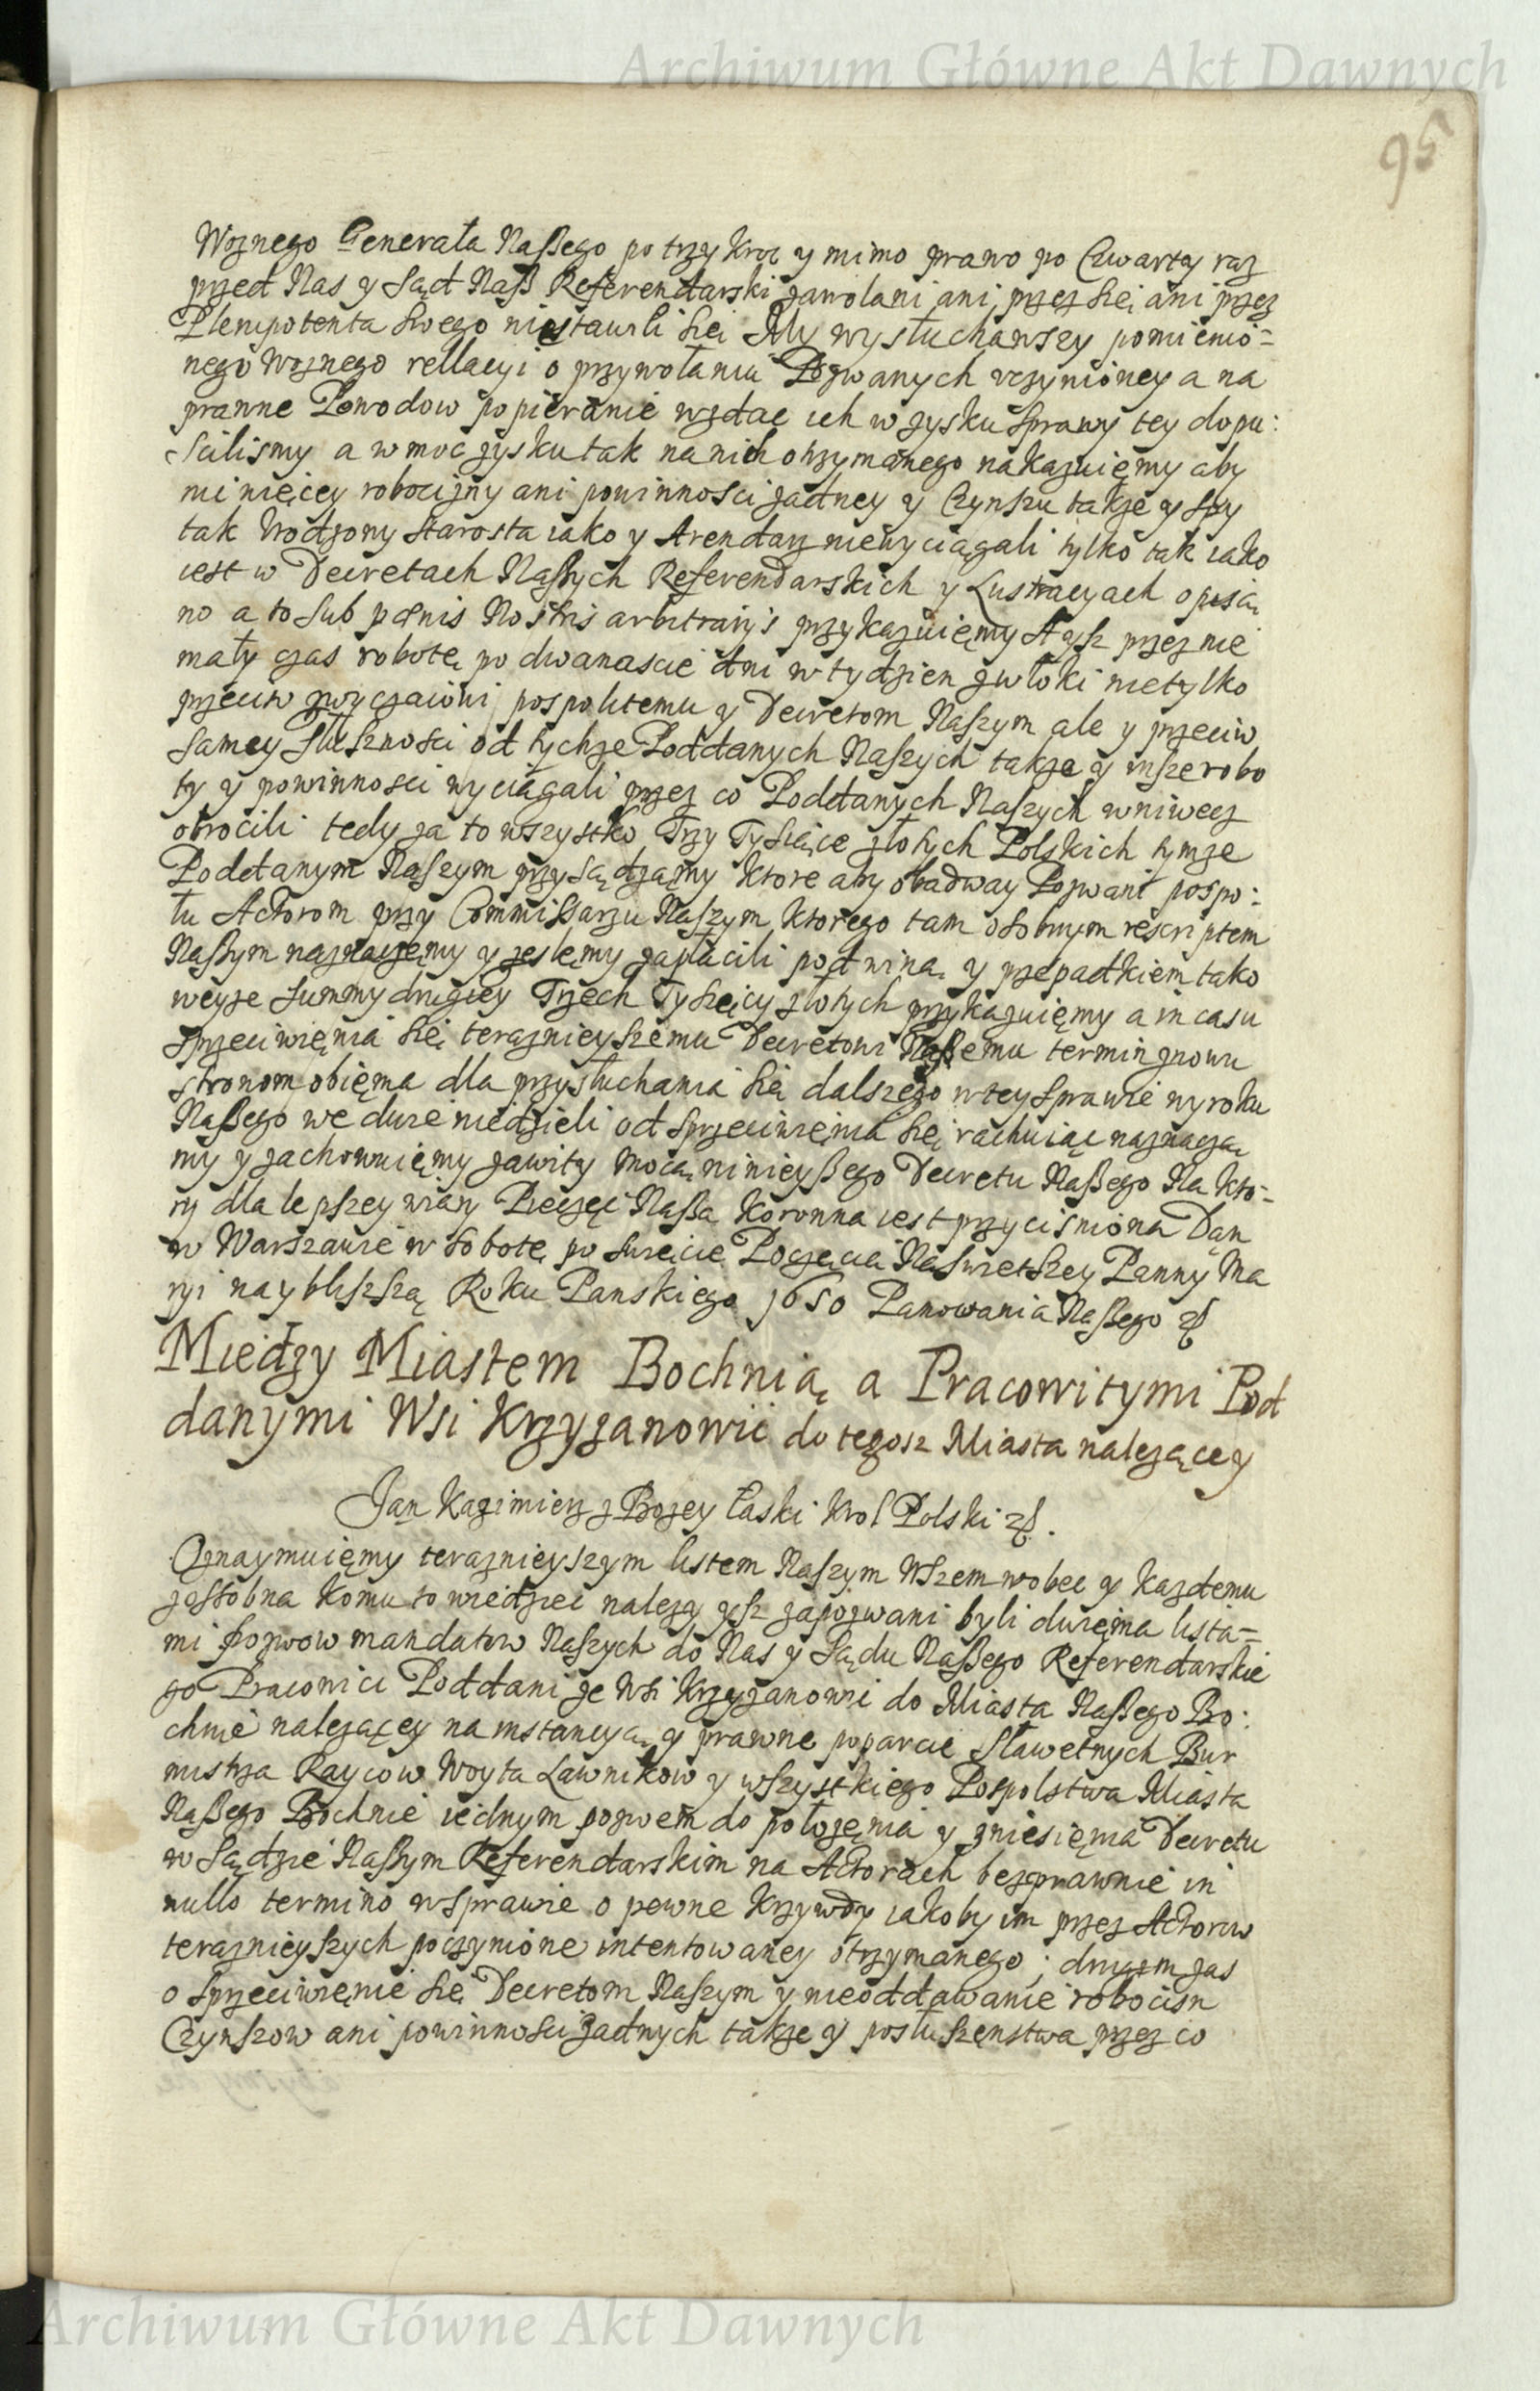 Archiwum Główne Akt Dawnych
95
Woznego Generała Naßego po trzykroc y mimo prawo po Czwarty raz
przed Nas y Sąd Naß Referendarski zawolani ani przez się ani przez
Plenipotenta swego niestawili się My wysłuchawszy pomienio=
nego Woznego rellacyi o przywołaniu Pozwanych vczynioney a na
prawne Powodow popieranie wzdac ich w zysku sprawy tey dopu:
scilismy a w moc zysku tak na nich otrzymanego nakazuięmy aby
ni więcey robocizny ani powinnosci zadney y Czynszu takze y Spy
tak Vrodzony Starosta iako y Arendarz niewyciągali tylko tak iako
iest w Decretach Naßych Referendarskich y Lustracyach opisa
no a to sub pœnis Nostris arbitrarijs przykazuięmy A ysz przez nie
mały czas robotę po dwanascie dni w tydzien zwłoki nietylko
przeciw zwyczaiowi pospolitemu y Decretom Naszym ale y przeciw
samey słusznosci od tychze Poddanych Naszych takze y insze robo
ty y powinnosci wyciagali przez co Poddanych Naszych wniwecz
obrocili tedy za to wszystko Trzy Tysiące złotych Polskich tymze
Poddanym Naszym przysądzamy ktore aby obadway Pozwani pospo:
łu Actorom przy Commissarzu Naszym ktorego tam osobnym rescriptem
Naßym naznaczęmy y zeslęmy zapłacili pod winą y przepadkiem tako
weyze summy drugiey Trzech Tysięcy złotych przykazuięmy a in casu
sprzeciwięnia się teraznieyszemu Decretowi Naßemu termin znowu
stronom obięma dla przysłuchania się dalszego w tey sprawie wyroku
Naßego we dwie niedzieli od sprzeciwięnia się rachuiąc naznacza
my y zachowuięmy zawity mocą ninieyßego Decretu Naßego Na kto=
ry dla lepszey wiary Pieczęc Naßa Koronna iest przycisniona Dan
w Warszawie w Sobotę po swięcie Poczęcia Naswietszey Panny Ma
ryi naybliszszą Roku Panskiego 1650 Panowania Naßego &
Miedzy Miastem Bochnią a Pracowitymi Pod
danymi Wsi Krzyzanowic do tegosz Miasta nalezącey
Jan Kazimierz z Bozey Łaski Krol Polski &.
Oznaymuięmy teraznieyszym listem Naszym Wszem wobec y kazdemu
zosobna komu to wiedziec nalezy ysz zapozwani byli dwięma lista=
mi pozwow mandatow Naszych do Nas y Sądu Naßego Referendarskie
go Pracowici Poddani ze Wsi Krzyzanowic do Miasta Naßego Bo:
chnie nalezącey na instancyą y prawne poparcie Sławetnych Bur
mistrza Raycow Woyta Ławnikow y wszystkiego Pospolstwa Miasta
Naßego Bochnie iednym pozwem do połozęnia y zniesięnia Decretu
w Sądzie Naßym Referendarskim na Actorach bezprawnie in
nullo termino w sprawie o pewne krzywdy iakoby im przez Actorow
teraznieyszych poczynione intentowaney otrzymanego; drugim zas
o sprzeciwięnie się Decretom Naszym y nieoddawanie robocisn
Czynszow ani powinnosci zadnych takze y posłuszęnstwa przez co
Archiwum Główne Akt Dawnych